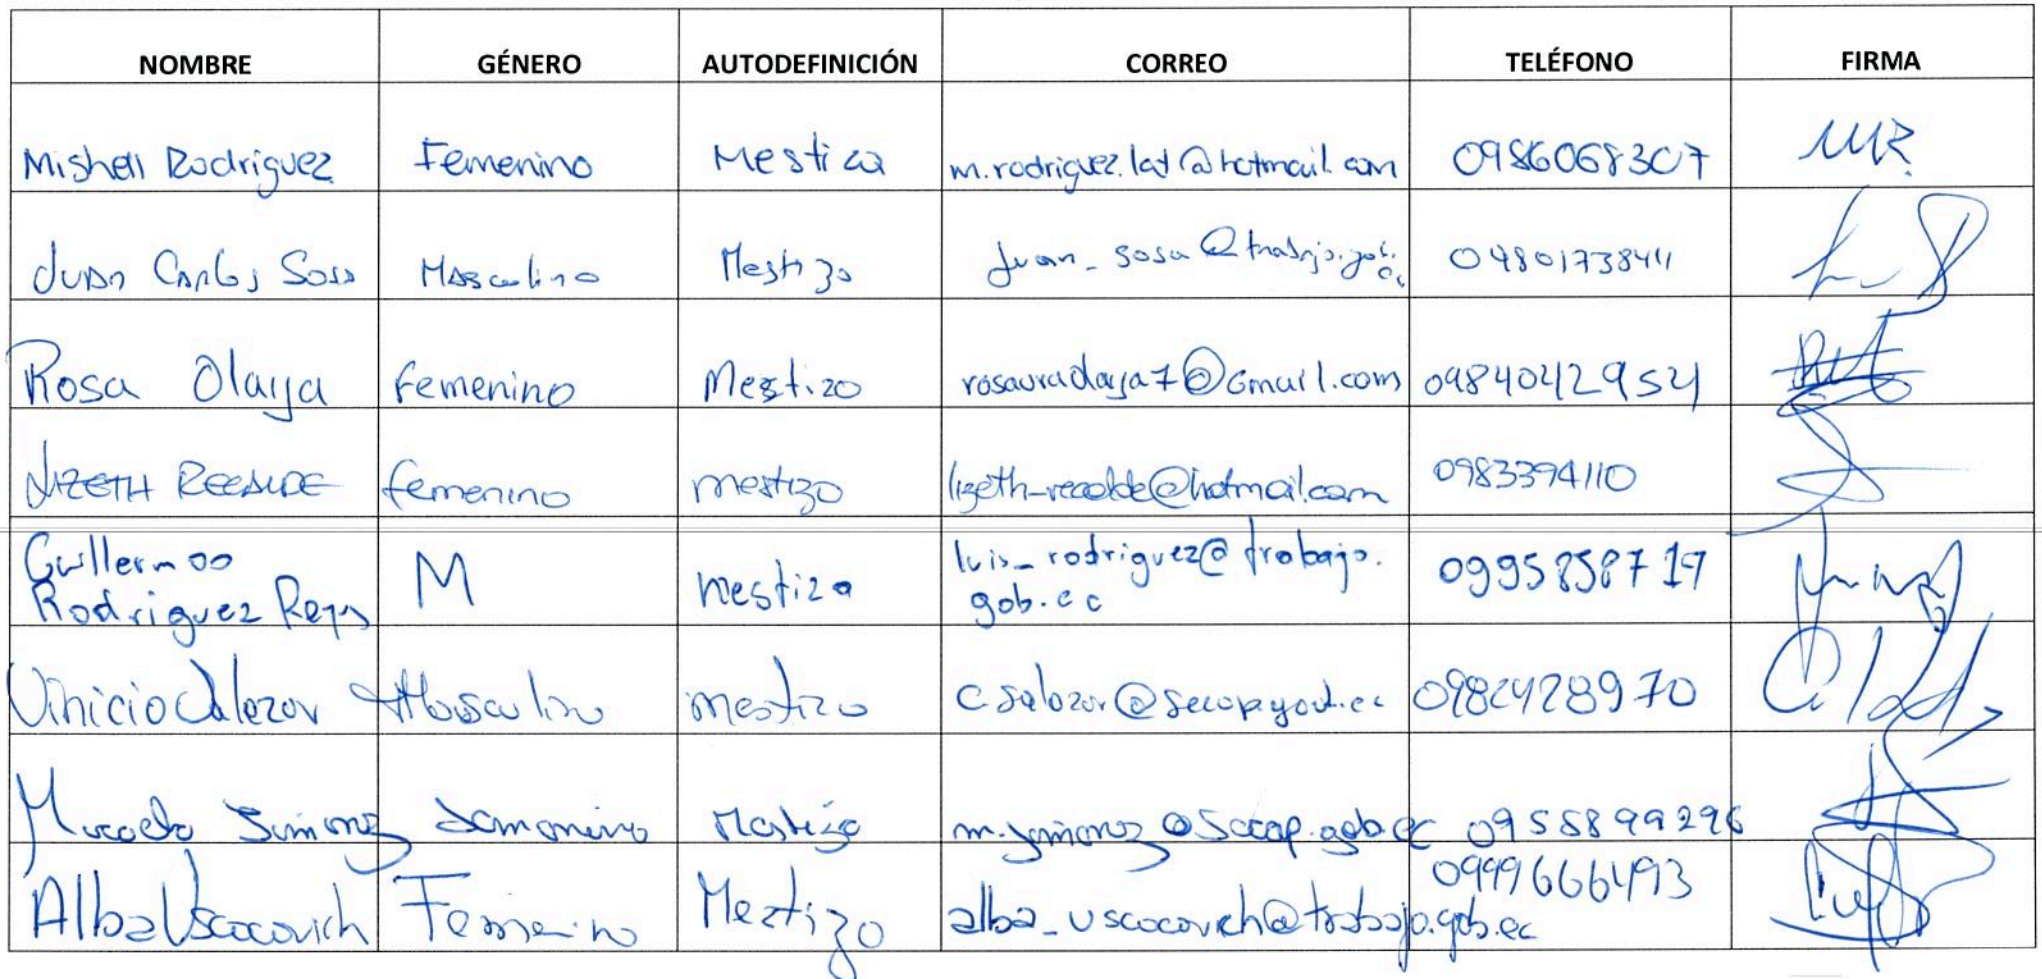 NOMBRE GÉNERO AUTODEFINICIÓN CORREO TELÉFONO FIRMA
Mishell Rodriguez Femenino Mestiza m.rodriguez.lat@hotmail.com 0986068307 MR
Juan Carlos Sosa Masculino Mestizo juan_sosa@trabajo.gob.ec
Rosa Olaya femenino Mestizo rosauraolaya7@Gmail.com 0984042954
LIZETH RECALDE femenino mestizo lizeth-recalde@hotmail.com 0983394110
Guillermo
Rodriguez Reyes M mestizo luis_rodriguez@trabajo.
gob.ec 0995858719
Vinicio Salazar Masculino mestizo 0982428970
Jimenez Femenino Mestizo 0958899296
Alba Uscocovich Femenino Mestizo alba_uscocovich@trabajo.gob.ec 0999666493